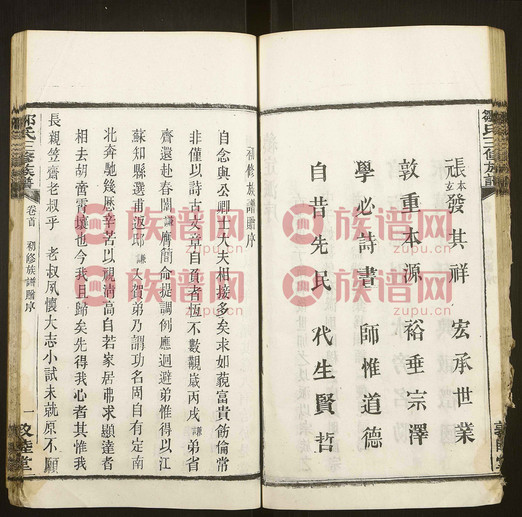 張本玄發其祥 宏承世業
敦重本源 裕垂宗澤
學必詩書 師惟道德
自昔先民 代生賢哲
敦睦堂
初修族譜贈序
自念與公卿士大夫相接多矣求如藐富貴飭倫常
非僅以詩古文章自見者恆不數覯歲丙戌謙弟省
齊還赴春闈謙膺簡命提調例應迴避弟惟得以江
蘇知縣選甫返邸謙入賀弟乃謂功名固自有定南
北奔馳幾歷辛苦以視淌高自若家居弗求顯達者
相去胡啻霄壤也今我言旦歸矣先得我心者其惟我
長親笠齋老叔乎 老叔夙懷大志小試未就原不願
鄒氏三修族譜 卷首 初修族譜贈序 一 敦睦堂
族谱网
zupu.cn